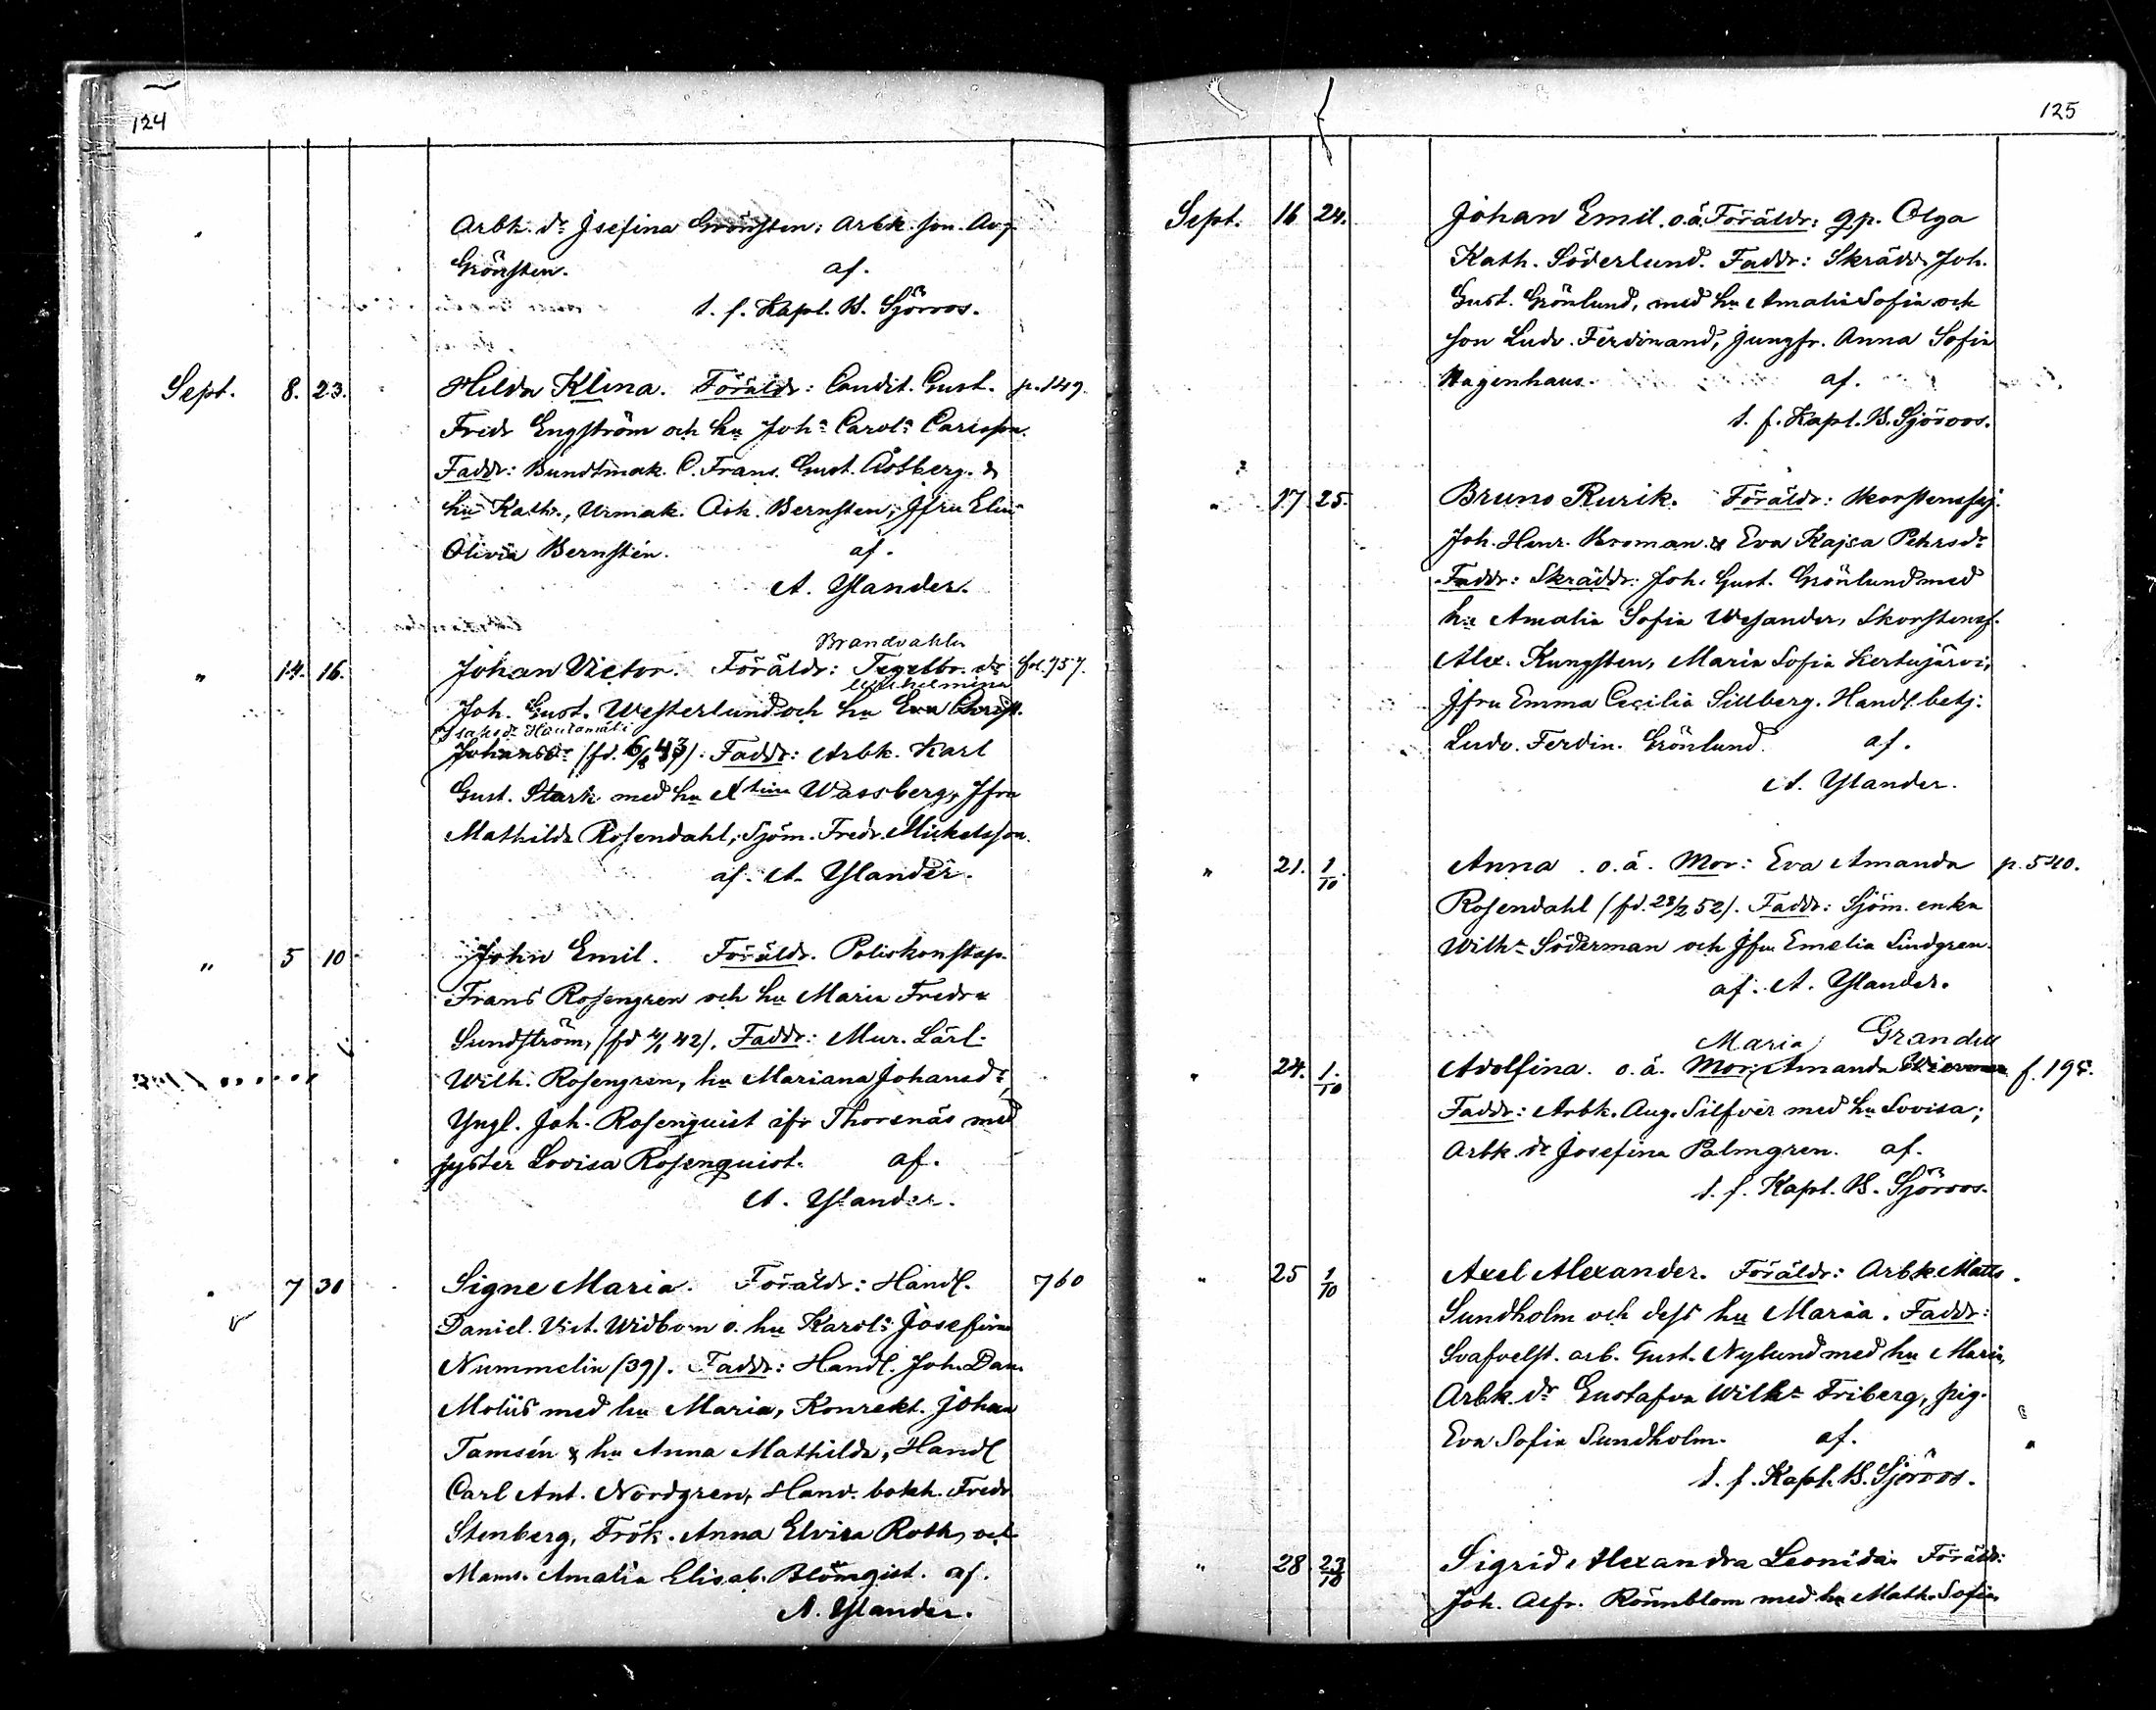 124
Arbk. dr Josefina Grönsten; Arbk. son. Aug.
Grönsten. af.
t. f. Kapl. B. Sjöroos.
Sept. 8. 23. Hilda Elina. Föräldr: Condit. Gust. p. 149.
Fredr Engström och hu Joha Carola Carlsson.
Faddr: Bundtmak. C. Frans. Gust. Åstberg. &
hu Kath., Urmak. Osk. Bernsten, Jfru Elin
Olivia Bernstén. af.
A. Ylander.
Brandvakten
" 14. 16. Johan Victor. Föräldr: Tegelbr. fol. 757.
Wilhelmina
Joh. Gust. Westerlund och hu Eva Christ.
Isaksdr Hautamäki
Johansdr (fd. 6/8 43). Faddr: Arbk. Karl
Gust. Stark med hu Xtina Wassberg, Jfru
Mathilda Rosendahl, Sjöm. Fredr. Mickelsson.
af. A. Ylander.
" 5 10 John Emil. Föräldr. Poliskonstap.
Frans Rosengren och hu Maria Fredra
Sundström, (fd 4/1 42). Faddr: Mur. Lärl.
Wilh. Rosengren, hu Mariana Johansdr,
Yngl. Joh. Rosenquist ifr Thorsnäs med
syster Lovisa Rosenquist. af.
A. Ylander.
" 7 30 Signe Maria. Föräldr: Handl. 760
Daniel. Vict. Widbom o. hu Karola Josefina
Nummelin (39). Faddr: Handl. Joh. Dan.
Moliis med hu Maria, Konrekt. Johan
Tamsén & hu Anna Mathilda, Handl
Carl Ant. Nordgren, Hand. bokh. Fredr.
Stenberg, Frök. Anna Elvira Roth, och
Mams. Amalia Elisab. Blomqist. af.
A. Ylander.
125
Sept. 16 24. Johan Emil. o.ä. Föräldr: gp. Olga
Kath. Söderlund. Faddr: Skrädd. Joh.
Gust. Grönlund, med hu Amalia Sofia och
son Ludv. Ferdinand, Jungfr. Anna Sofia
Hagenhaus. af.
t. f. Kapl. B. Sjöroos.
" 17 25. Bruno Rurik. Föräldr: Skorstensfej.
Joh. Henr. Broman & Eva Kajsa Pehrsdr
Faddr: Skräddr: Joh. Gust. Grönlund med
hu Amalia Sofia Wesander, Skorstensf.
Alex. Kungsten, Maria Sofia Kertujärvi,
Jfru Emma Cecilia Sillberg. Handl. betj.
Ludv. Ferdin. Grönlund. af.
A. Ylander.
" 21. 1/10. Anna. o.ä. Mor: Eva Amanda p. 540.
Rosendahl (fd. 28/2 52). Faddr: Sjöm. enka
Wilha Söderman och Jfru Emelia Lindgren.
af. A. Ylander.
Maria Grandell
" 24. 1/10 Adolfina. o.ä. Mor: Amanda f. 195.
Faddr: Arbk. Aug. Silfvér med hu Lovisa;
Arbk. dr Josefina Palmgren. af.
t. f. Kapl. B. Sjöroos.
" 25 1/10 Axel Alexander. Föräldr: Arbk. Matts
Sundholm och dess hu Maria. Faddr:
Svafvelst. arb. Gust. Nylund med hu Maria,
Arbk. dr Gustafva Wilha Friberg, pig.
Eva Sofia Sundholm. af.
t. f. Kapl. B. Sjöroos.
" 28 23/10 Sigrid Alexandra Leonida. Föräldr:
Joh. Alfr. Rönnblom med hu Math. Sofia.